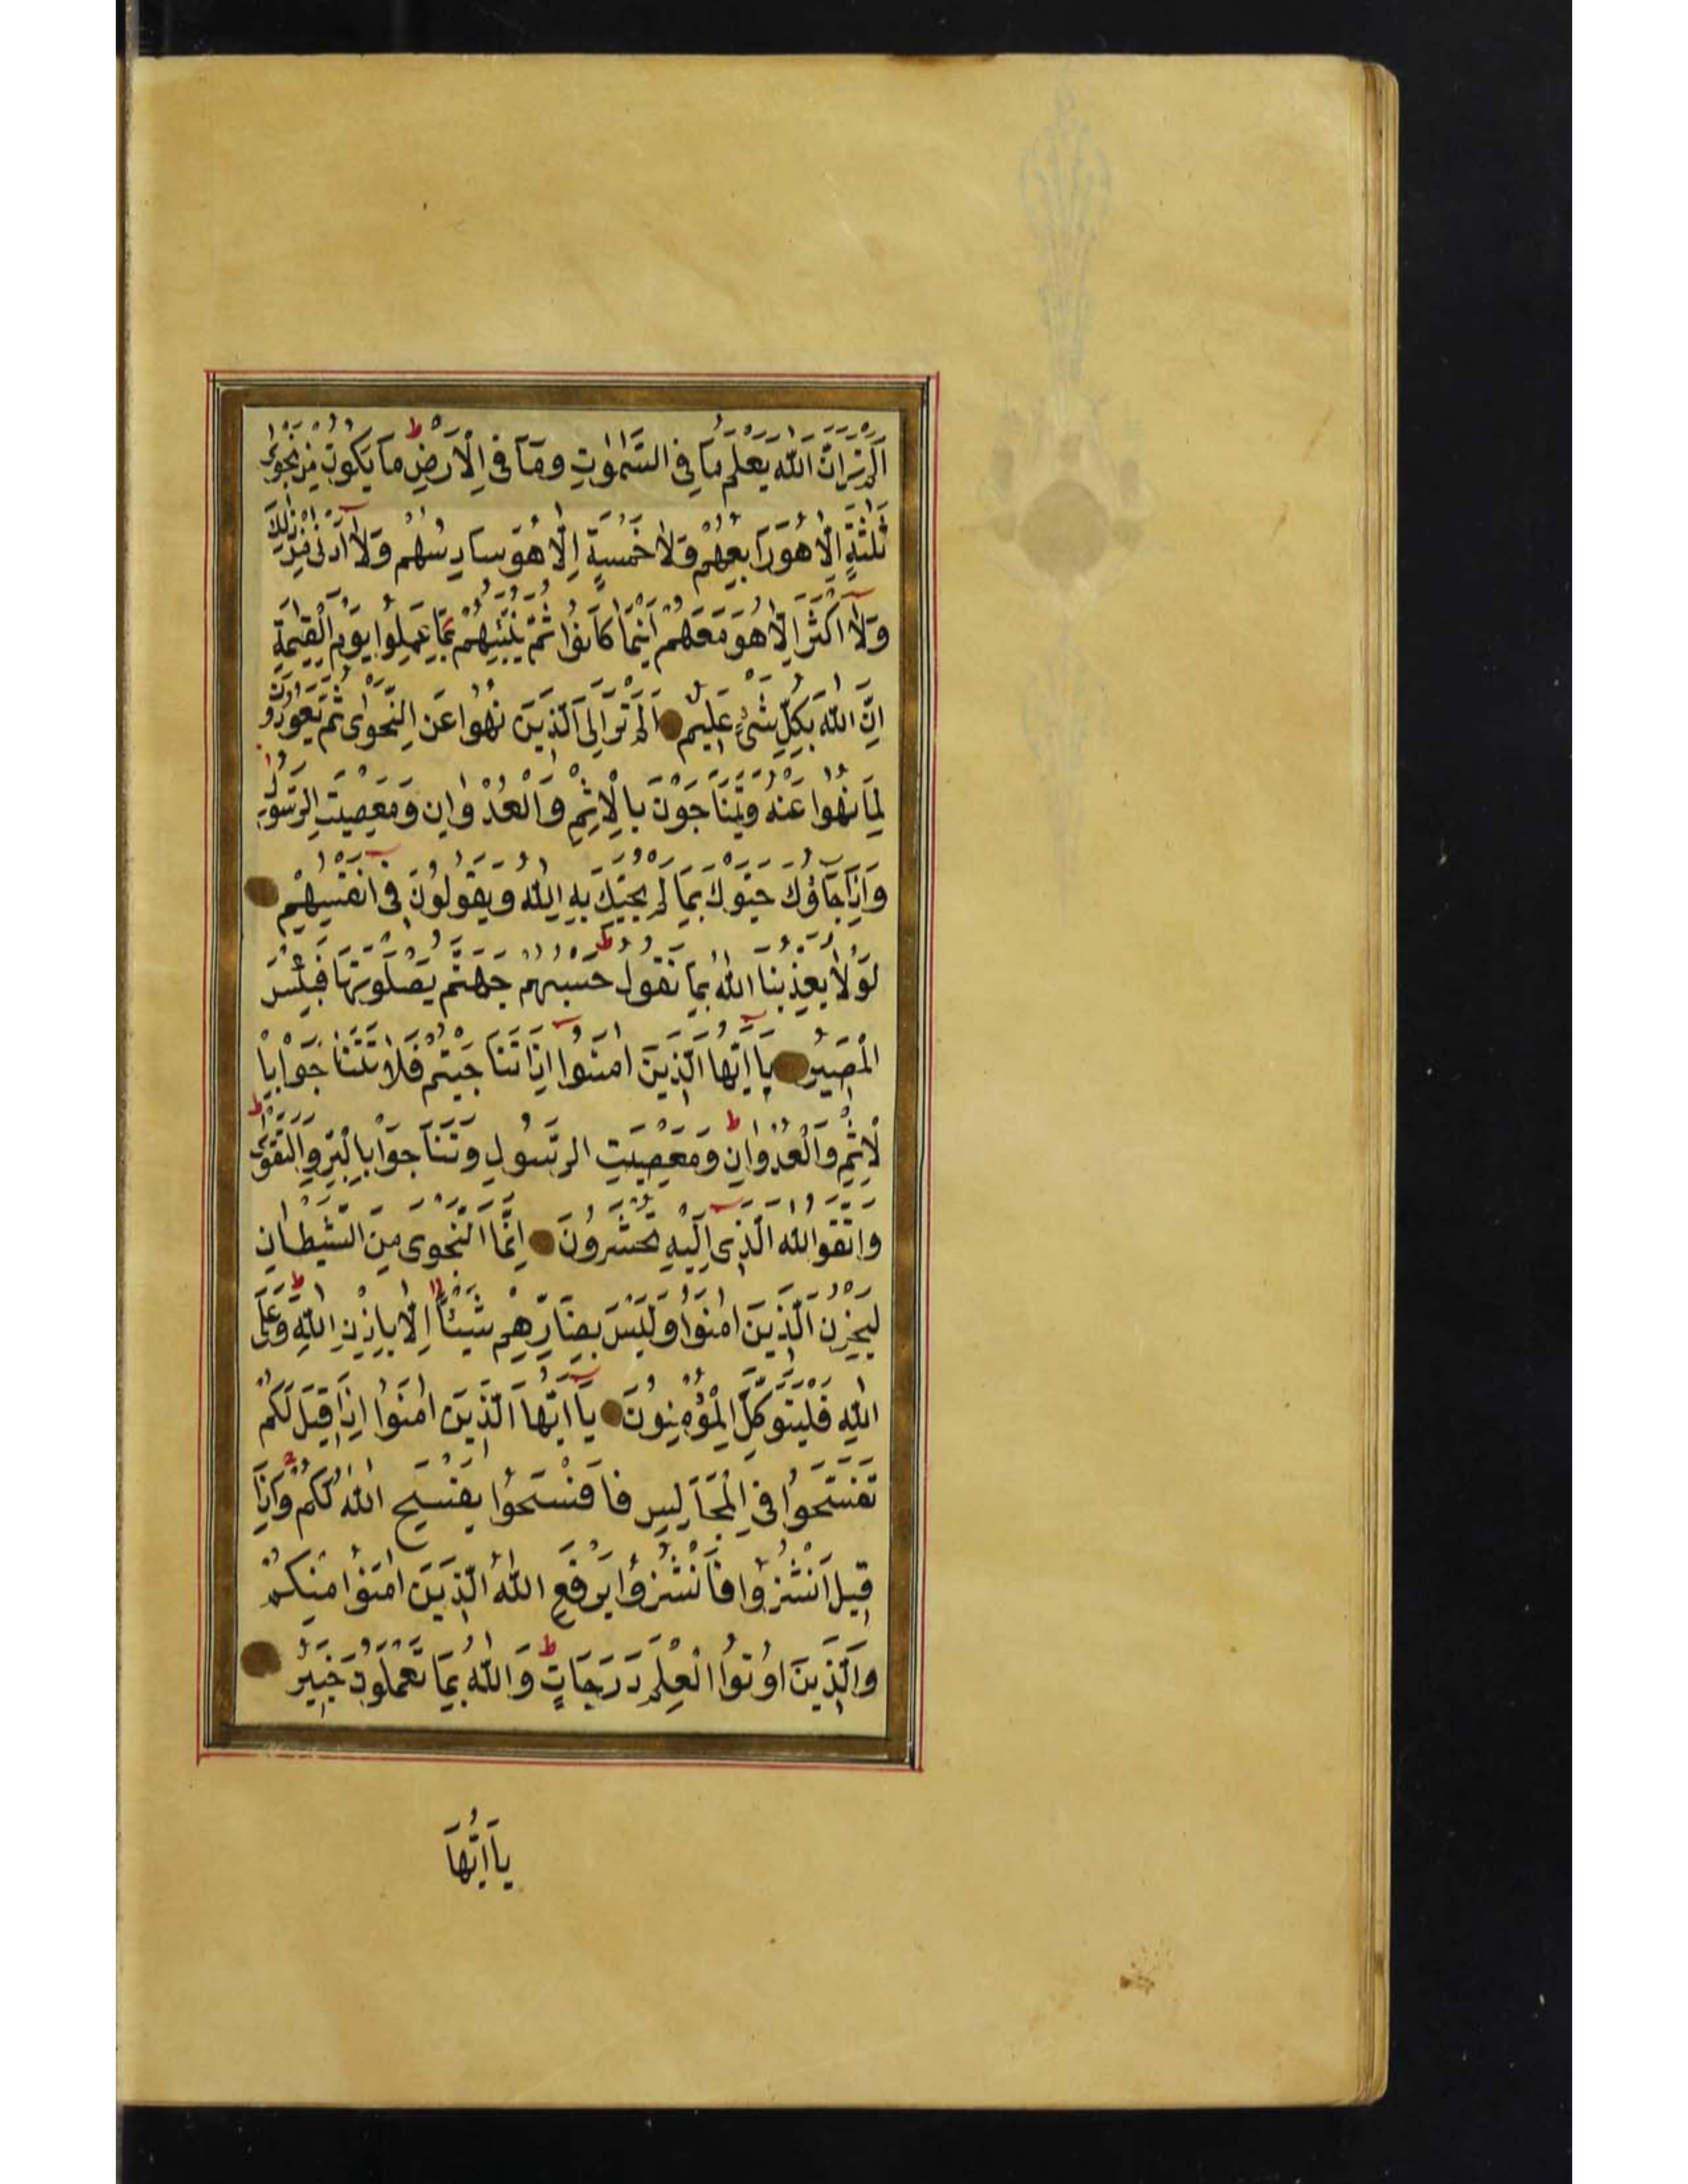 اَلَمْ تَرَ اَنَّ اللّٰهَ يَعْلَمُ مَا فِي السَّمٰوَاتِ وَمَا فِي الْاَرْضِ ط مَا يَكُونُ مِنْ نَجْوٰى
ثَلٰثَةٍ اِلَّا هُوَ رَابِعُهُمْ وَلَا خَمْسَةٍ اِلَّا هُوَ سَادِسُهُمْ وَلَا اَدْنٰى مِنْ ذٰلِكَ
وَلَا اَكْثَرَ اِلَّا هُوَ مَعَهُمْ اَيْنَمَا كَانُوا ثُمَّ يُنَبِّئُهُمْ بِمَا عَمِلُوا يَوْمَ الْقِيٰمَةِ
اِنَّ اللّٰهَ بِكُلِّ شَىْءٍ عَلِيمٌ اَلَمْ تَرَ اِلَى الَّذِينَ نُهُوا عَنِ النَّجْوٰى ثُمَّ يَعُودُونَ
لِمَا نُهُوا عَنْهُ وَيَتَنَاجَوْنَ بِالْاِثْمِ وَالْعُدْوَانِ وَمَعْصِيَتِ الرَّسُولِ
وَاِذَا جَاؤُكَ حَيَّوْكَ بِمَا لَمْ يُحَيِّكَ بِهِ اللّٰهُ وَيَقُولُونَ فِي اَنْفُسِهِمْ
لَوْلَا يُعَذِّبُنَا اللّٰهُ بِمَا نَقُولُ ط حَسْبُهُمْ جَهَنَّمُ يَصْلَوْنَهَا فَبِئْسَ
الْمَصِيرُ يَا اَيُّهَا الَّذِينَ اٰمَنُوا اِذَا تَنَاجَيْتُمْ فَلَا تَتَنَاجَوْا بِا
لْاِثْمِ وَالْعُدْوَانِ ط وَمَعْصِيَتِ الرَّسُولِ وَتَنَاجَوْا بِالْبِرِّ وَالتَّقْوٰى ط
وَاتَّقُوا اللّٰهَ الَّذِى اِلَيْهِ تُحْشَرُونَ اِنَّمَا النَّجْوٰى مِنَ الشَّيْطَانِ
لِيَحْزُنَ الَّذِينَ اٰمَنُوا وَلَيْسَ بِضَارِّهِمْ شَيْئًا اِلَّا بِاِذْنِ اللّٰهِ ط وَعَلَى
اللّٰهِ فَلْيَتَوَكَّلِ الْمُؤْمِنُونَ يَا اَيُّهَا الَّذِينَ اٰمَنُوا اِذَا قِيلَ لَكُمْ
تَفَسَّحُوا فِي الْمَجَالِسِ فَافْسَحُوا يَفْسَحِ اللّٰهُ لَكُمْ وَاِذَا
قِيلَ انْشُزُوا فَانْشُزُوا يَرْفَعِ اللّٰهُ الَّذِينَ اٰمَنُوا مِنْكُمْ
وَالَّذِينَ اُوتُوا الْعِلْمَ دَرَجَاتٍ ط وَاللّٰهُ بِمَا تَعْمَلُونَ خَبِيرٌ
يَا اَيُّهَا